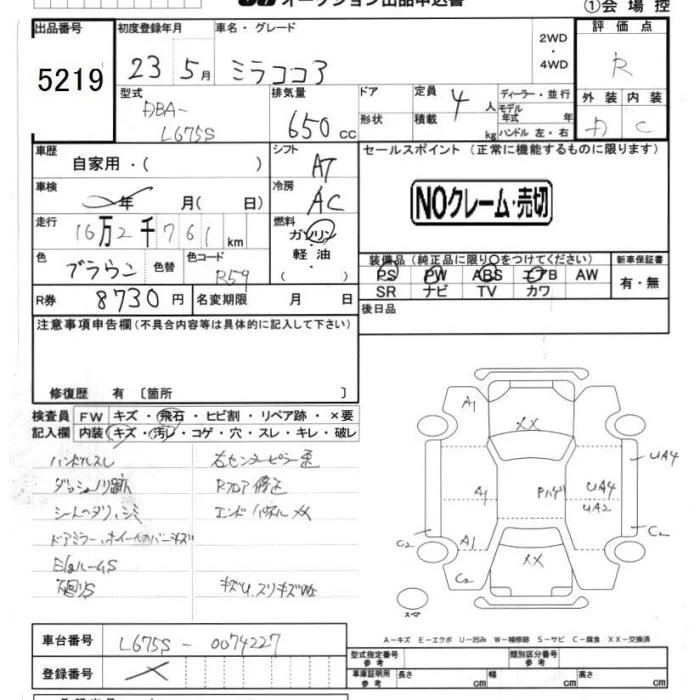 オークション出品申込書
①会場控
出品番号
5219
初度登録年月
車名・グレード
23 5月
ミラココア
2WD
・
4WD
評価点
R
外装 内装
A C
型式
DBA-
L675S
排気量
650 cc
ドア
形状
定員
4人
積載
kg
ディーラー・並行
モデル年式 年
ハンドル 左・右
車歴
自家用・( )
シフト
AT
セールスポイント(正常に機能するものに限ります)
NOクレーム・売切
車検
年 月( 日)
冷房
AC
走行
16万2千761km
燃料
ガソリン
・
軽油
・
( )
色
ブラウン
色替
色コード
R59
装備品(純正品に限り○をつけてください)
PS PW ABS エアB AW
SR ナビ TV カワ
新車保証書
有・無
R券 8730円
名変期限 月 日
後日品
注意事項申告欄(不具合内容等は具体的に記入して下さい)
修復歴 有〔箇所 〕
検査員
記入欄
FW キズ・飛石・ヒビ割・リペア跡・×要
内装 キズ・汚レ・コゲ・穴・スレ・キレ・破レ
ハンドルスレ
ダッシュノリ跡
シートヘタリ、シミ
ドアミラー、ホイールカバーキズ
下廻りS
右センターピラー歪
Rフロア修正
エンドパネルXX
キズU、スリキズ
A1
XX
A1
Pハゲ
UA4
UA2
UA4
C2
C2
A1
XX
C2
スペア
A-キズ E-エクボ U-凹み W-補修跡 S-サビ C-腐食 XX-交換済
車台番号
L675S-0074227
登録番号
型式指定番号
参考
類別区分番号
参考
車庫証明用
参考
長さ cm
幅 cm
高さ cm